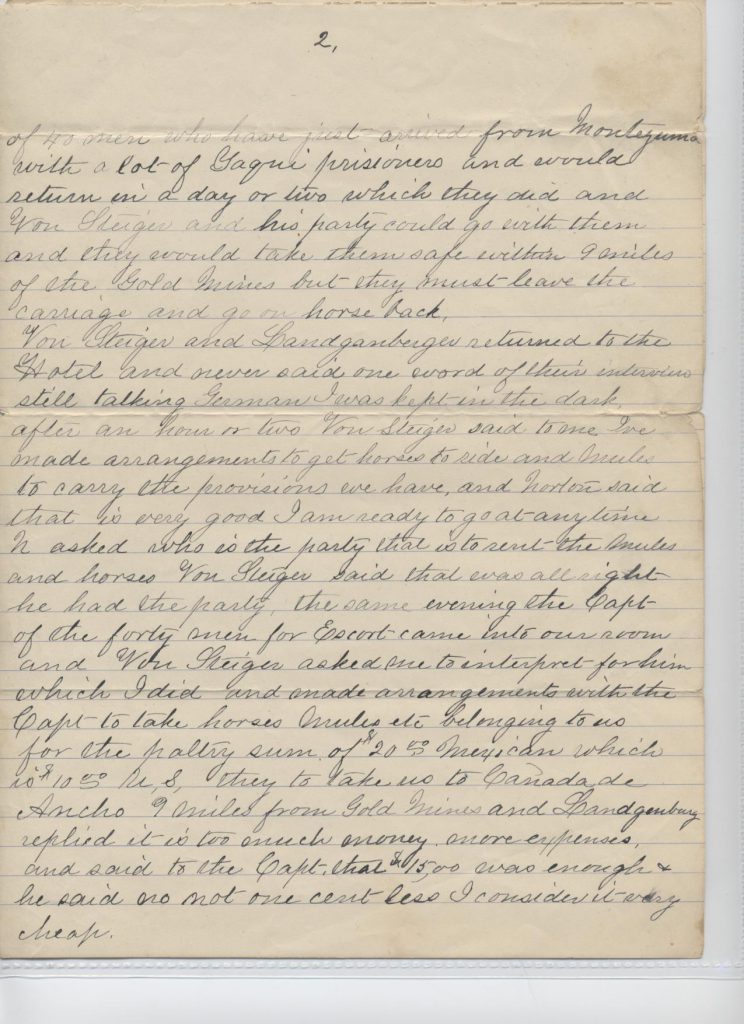 2,
of 40 men who have just arrived from Montezuma
with a lot of Yaqui prisioners and would
return in a day or two which they did and
Von Steiger and his party could go with them
and they would take them safe within 9 miles
of the Gold Mines but they must leave the
carriage and go on horse back,
Von Steiger and Landganberger returned to the
Hotel and never said one word of their interview
still talking German I was kept in the dark,
after an hour or two Von Steiger said to me I've
made arrangements to get horses to ride and Mules
to carry the provisions we have, and Norton said
that is very good I am ready to go at any time
N asked who is the party that is to rent the Mules
and horses Von Steiger said that was all right
he had the party, the same evening the Capt
of the forty men for Escort came into our room
and Von Steiger asked me to interpret for him
which I did and made arrangements with the
Capt to take horses Mules etc belonging to us
for the paltry sum of $20 00 Mexican which
is $10 00 U,S, they to take us to Cañada de
Ancho 9 miles from Gold Mines and Landgenburg
replied it is too much money. more expenses,
and said to the Capt, that $15,00 was enough &
he said no not one cent less I consider it very
cheap.